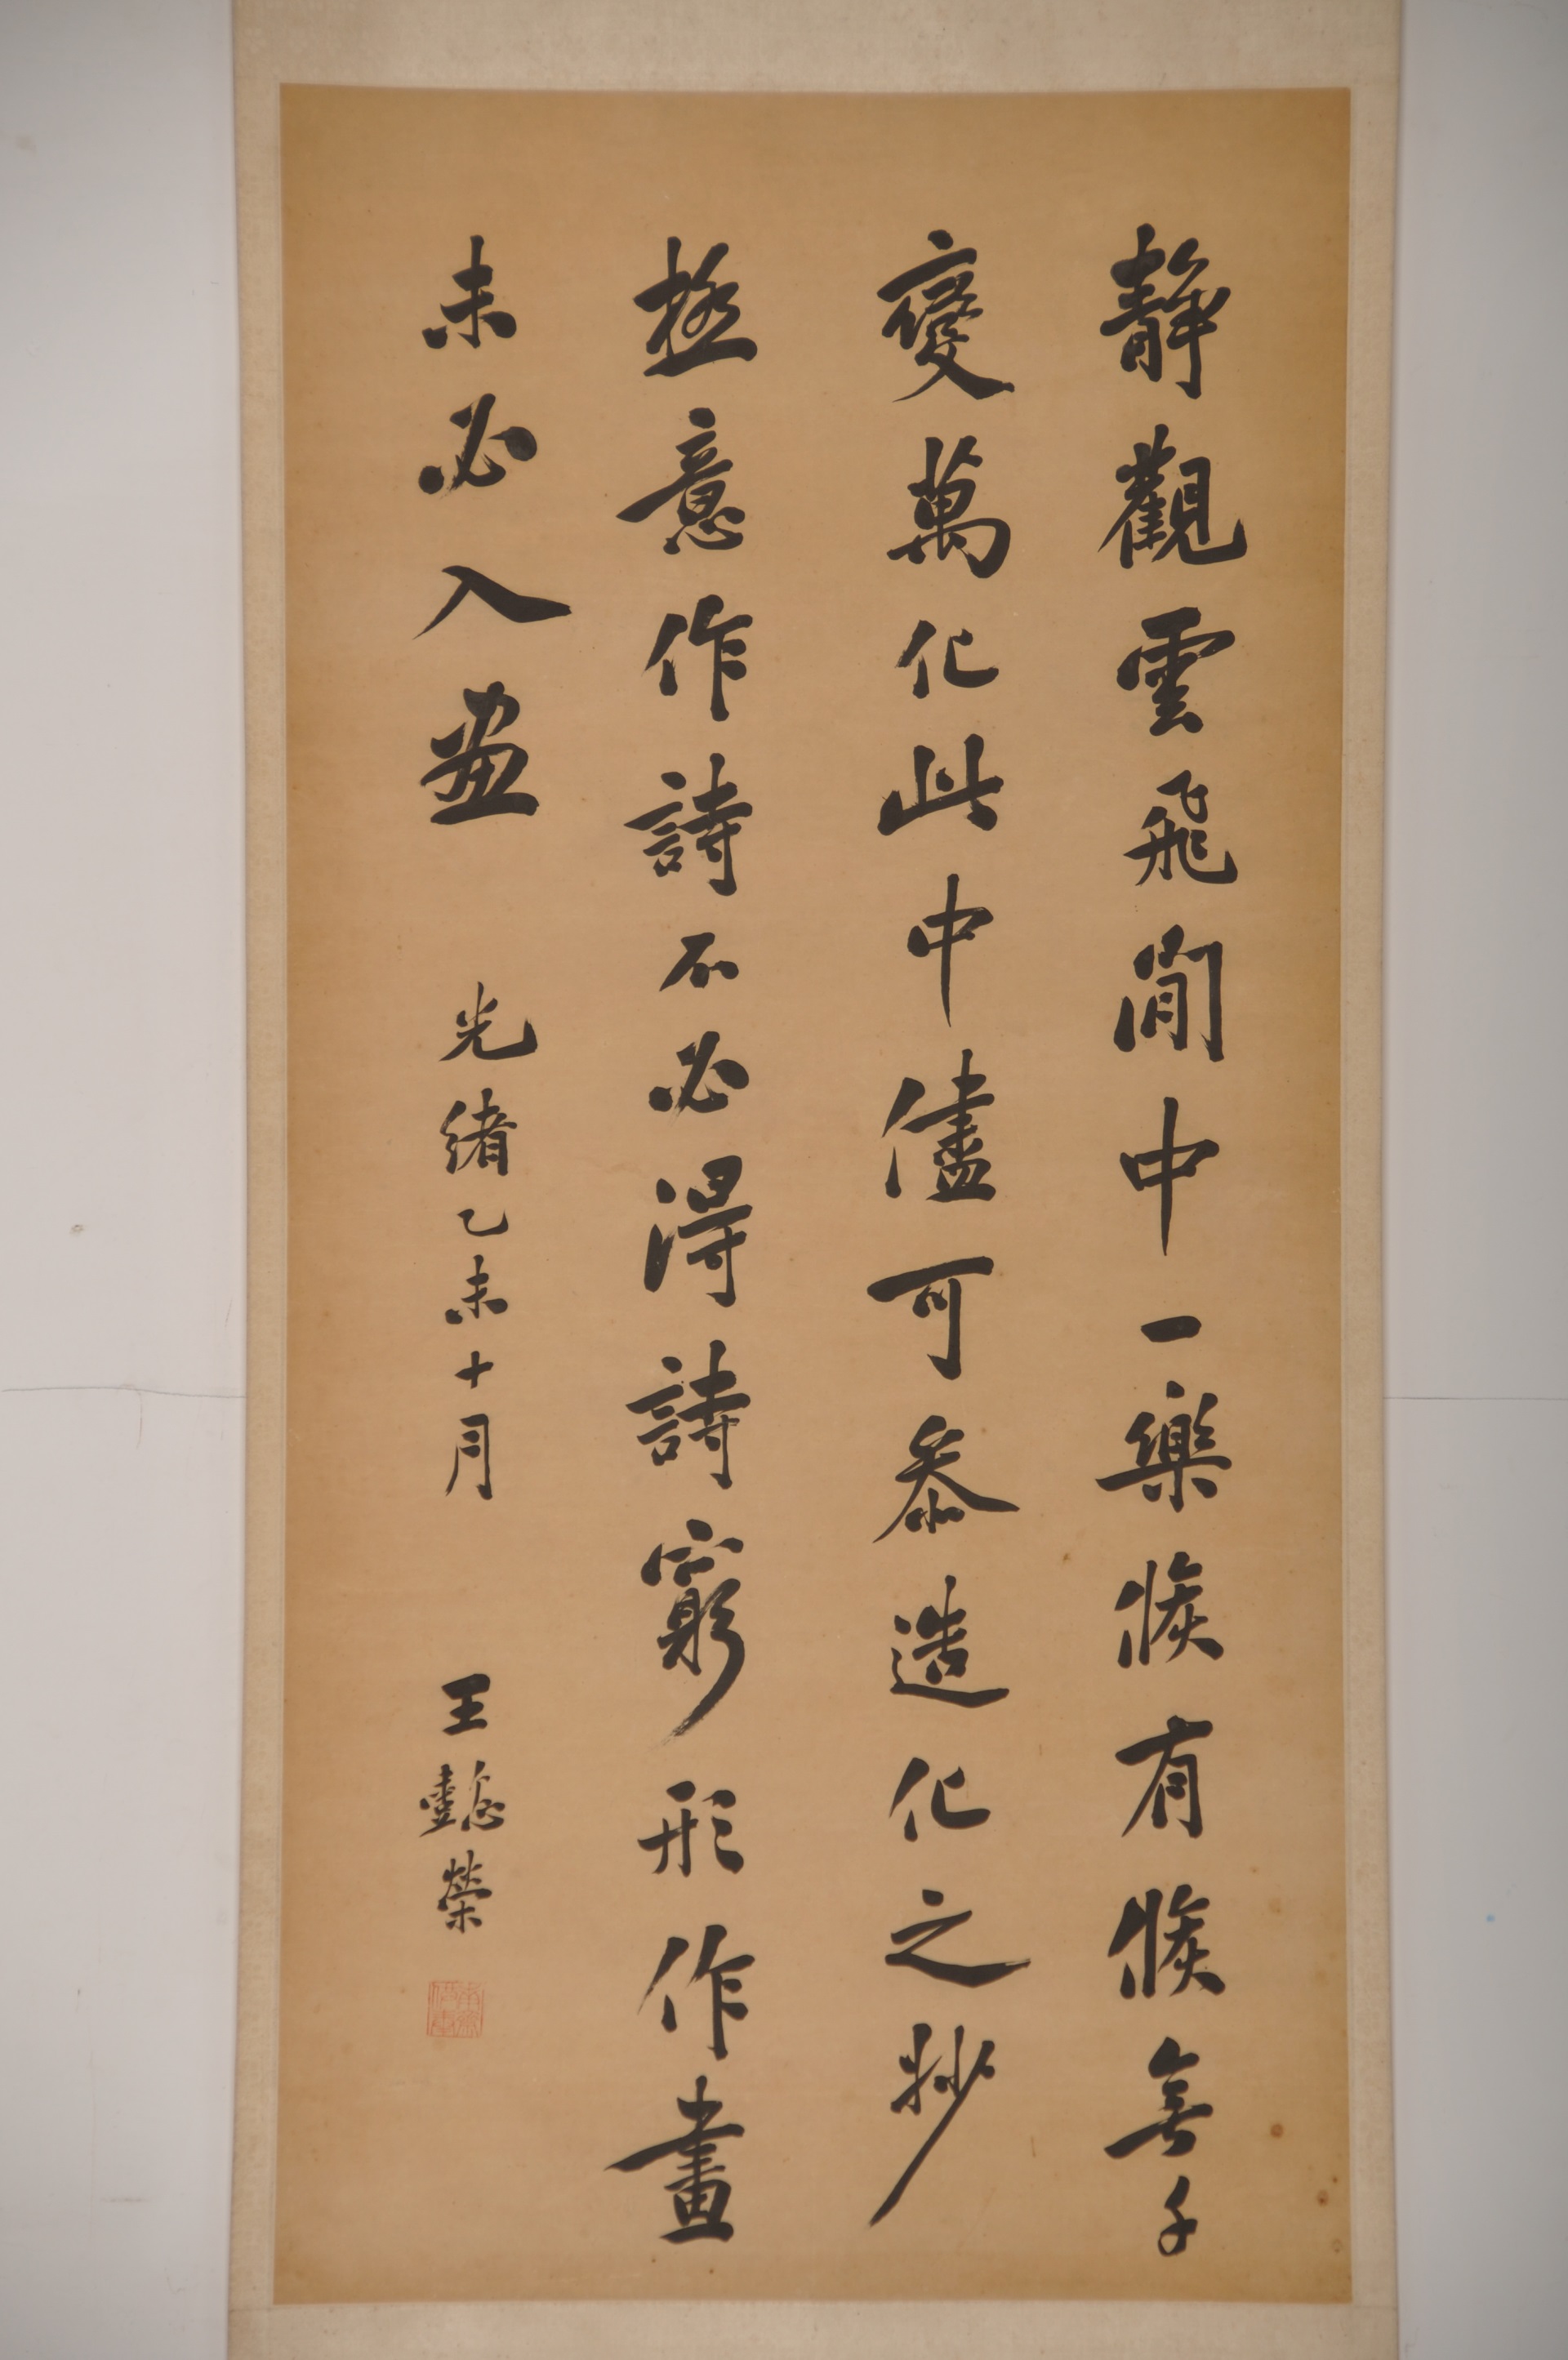 靜觀雲飛閒中一樂候有候無千
變萬化此中儘可參造化之妙
極意作詩不必得詩窮形作畫
未必入畫 光緒乙未十月 王懿榮